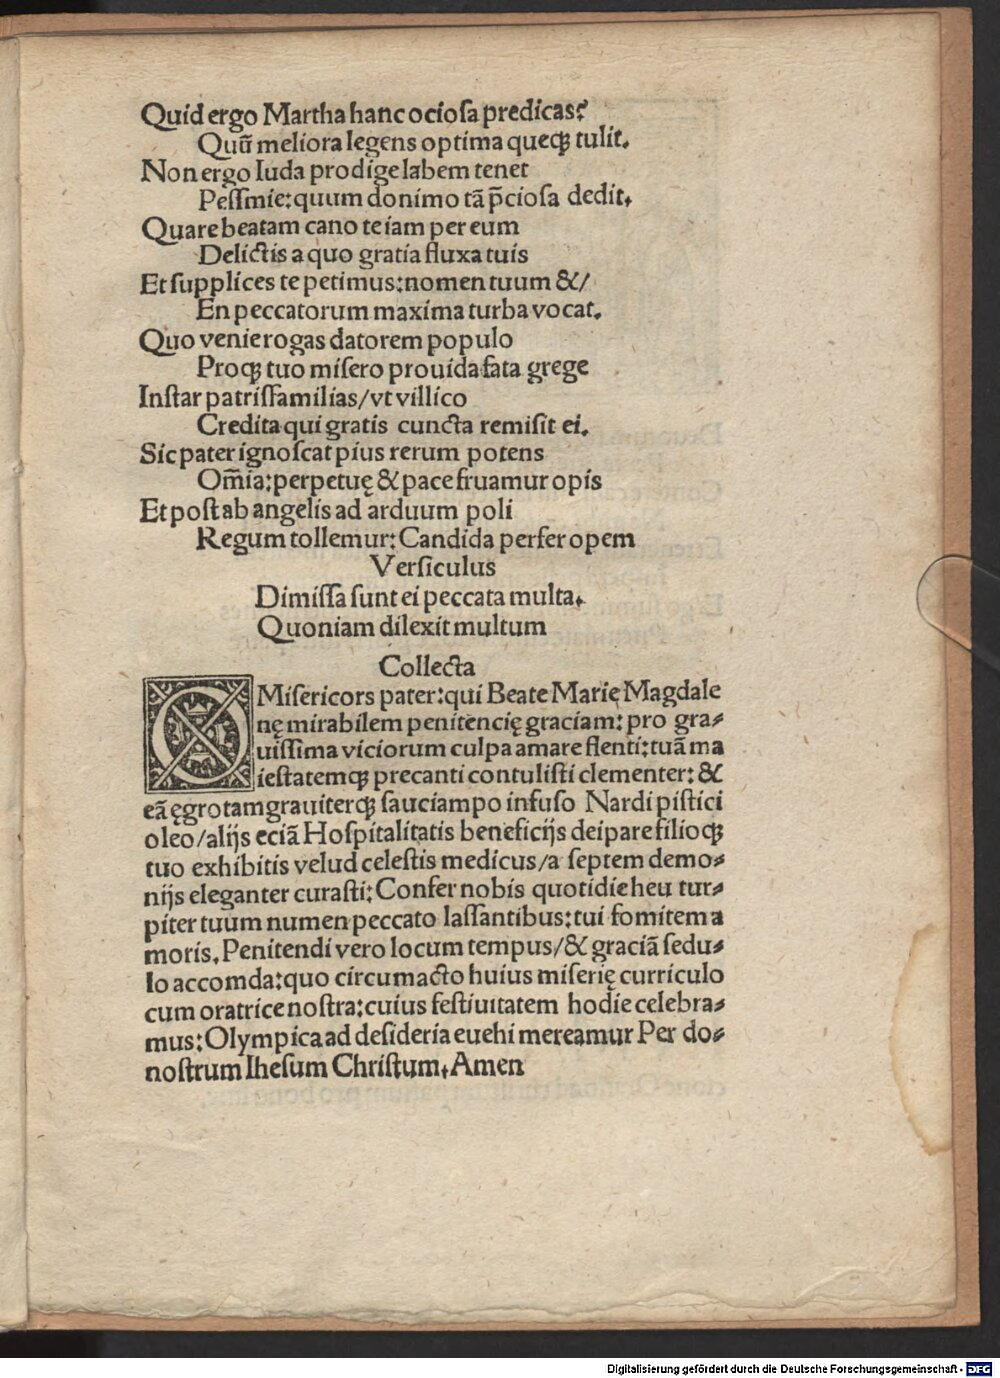 Quid ergo Martha hanc ociosa predicas?
Quū meliora legens optima queqꝫ tulit.
Non ergo Iuda prodige labem tenet
Peſſmie: quum donimo tā p̄cioſa dedit.
Quare beatam cano te iam per eum
Delictis a quo gratia fluxa tuis
Et ſupplices te petimus: nomen tuum &/
En peccatorum maxima turba vocat.
Quo venie rogas datorem populo
Proqꝫ tuo miſero prouida fata grege
Inſtar patriſfamilias/ vt villico
Credita qui gratis cuncta remiſit ei.
Sic pater ignoſcat pius rerum potens
Om̄ia: perpetuę & pace fruamur opis
Et poſt ab angelis ad arduum poli
Regum tollemur: Candida perfer opem
Verſiculus
Dimiſſa ſunt ei peccata multa.
Quoniam dilexit multum
Collecta
O Miſericors pater: qui Beate Marię Magdale
nę mirabilem penitencię graciam: pro gra⸗
uiſſima viciorum culpa amare flenti: tuā ma
ieſtatemqꝫ precanti contuliſti clementer: &
eā ęgrotam grauiterqꝫ ſauciam po infuſo Nardi piſtici
oleo/ alijs eciā Hoſpitalitatis beneficijs deipare filioqꝫ
tuo exhibitis velud celeſtis medicus/ a ſeptem demo⸗
nijs eleganter curaſti: Confer nobis quotidie heu tur⸗
piter tuum numen peccato laſſantibus: tui fomitem a
moris. Penitendi vero locum tempus/ & graciā ſedu⸗
lo accomda: quo circumacto huius miſerię curriculo
cum oratrice noſtra: cuius feſtiuitatem hodie celebra⸗
mus: Olympica ad deſideria euehi mereamur Per do⸗
noſtrum Iheſum Chriſtum. Amen
Digitalisierung gefördert durch die Deutsche Forschungsgemeinschaft - DFG